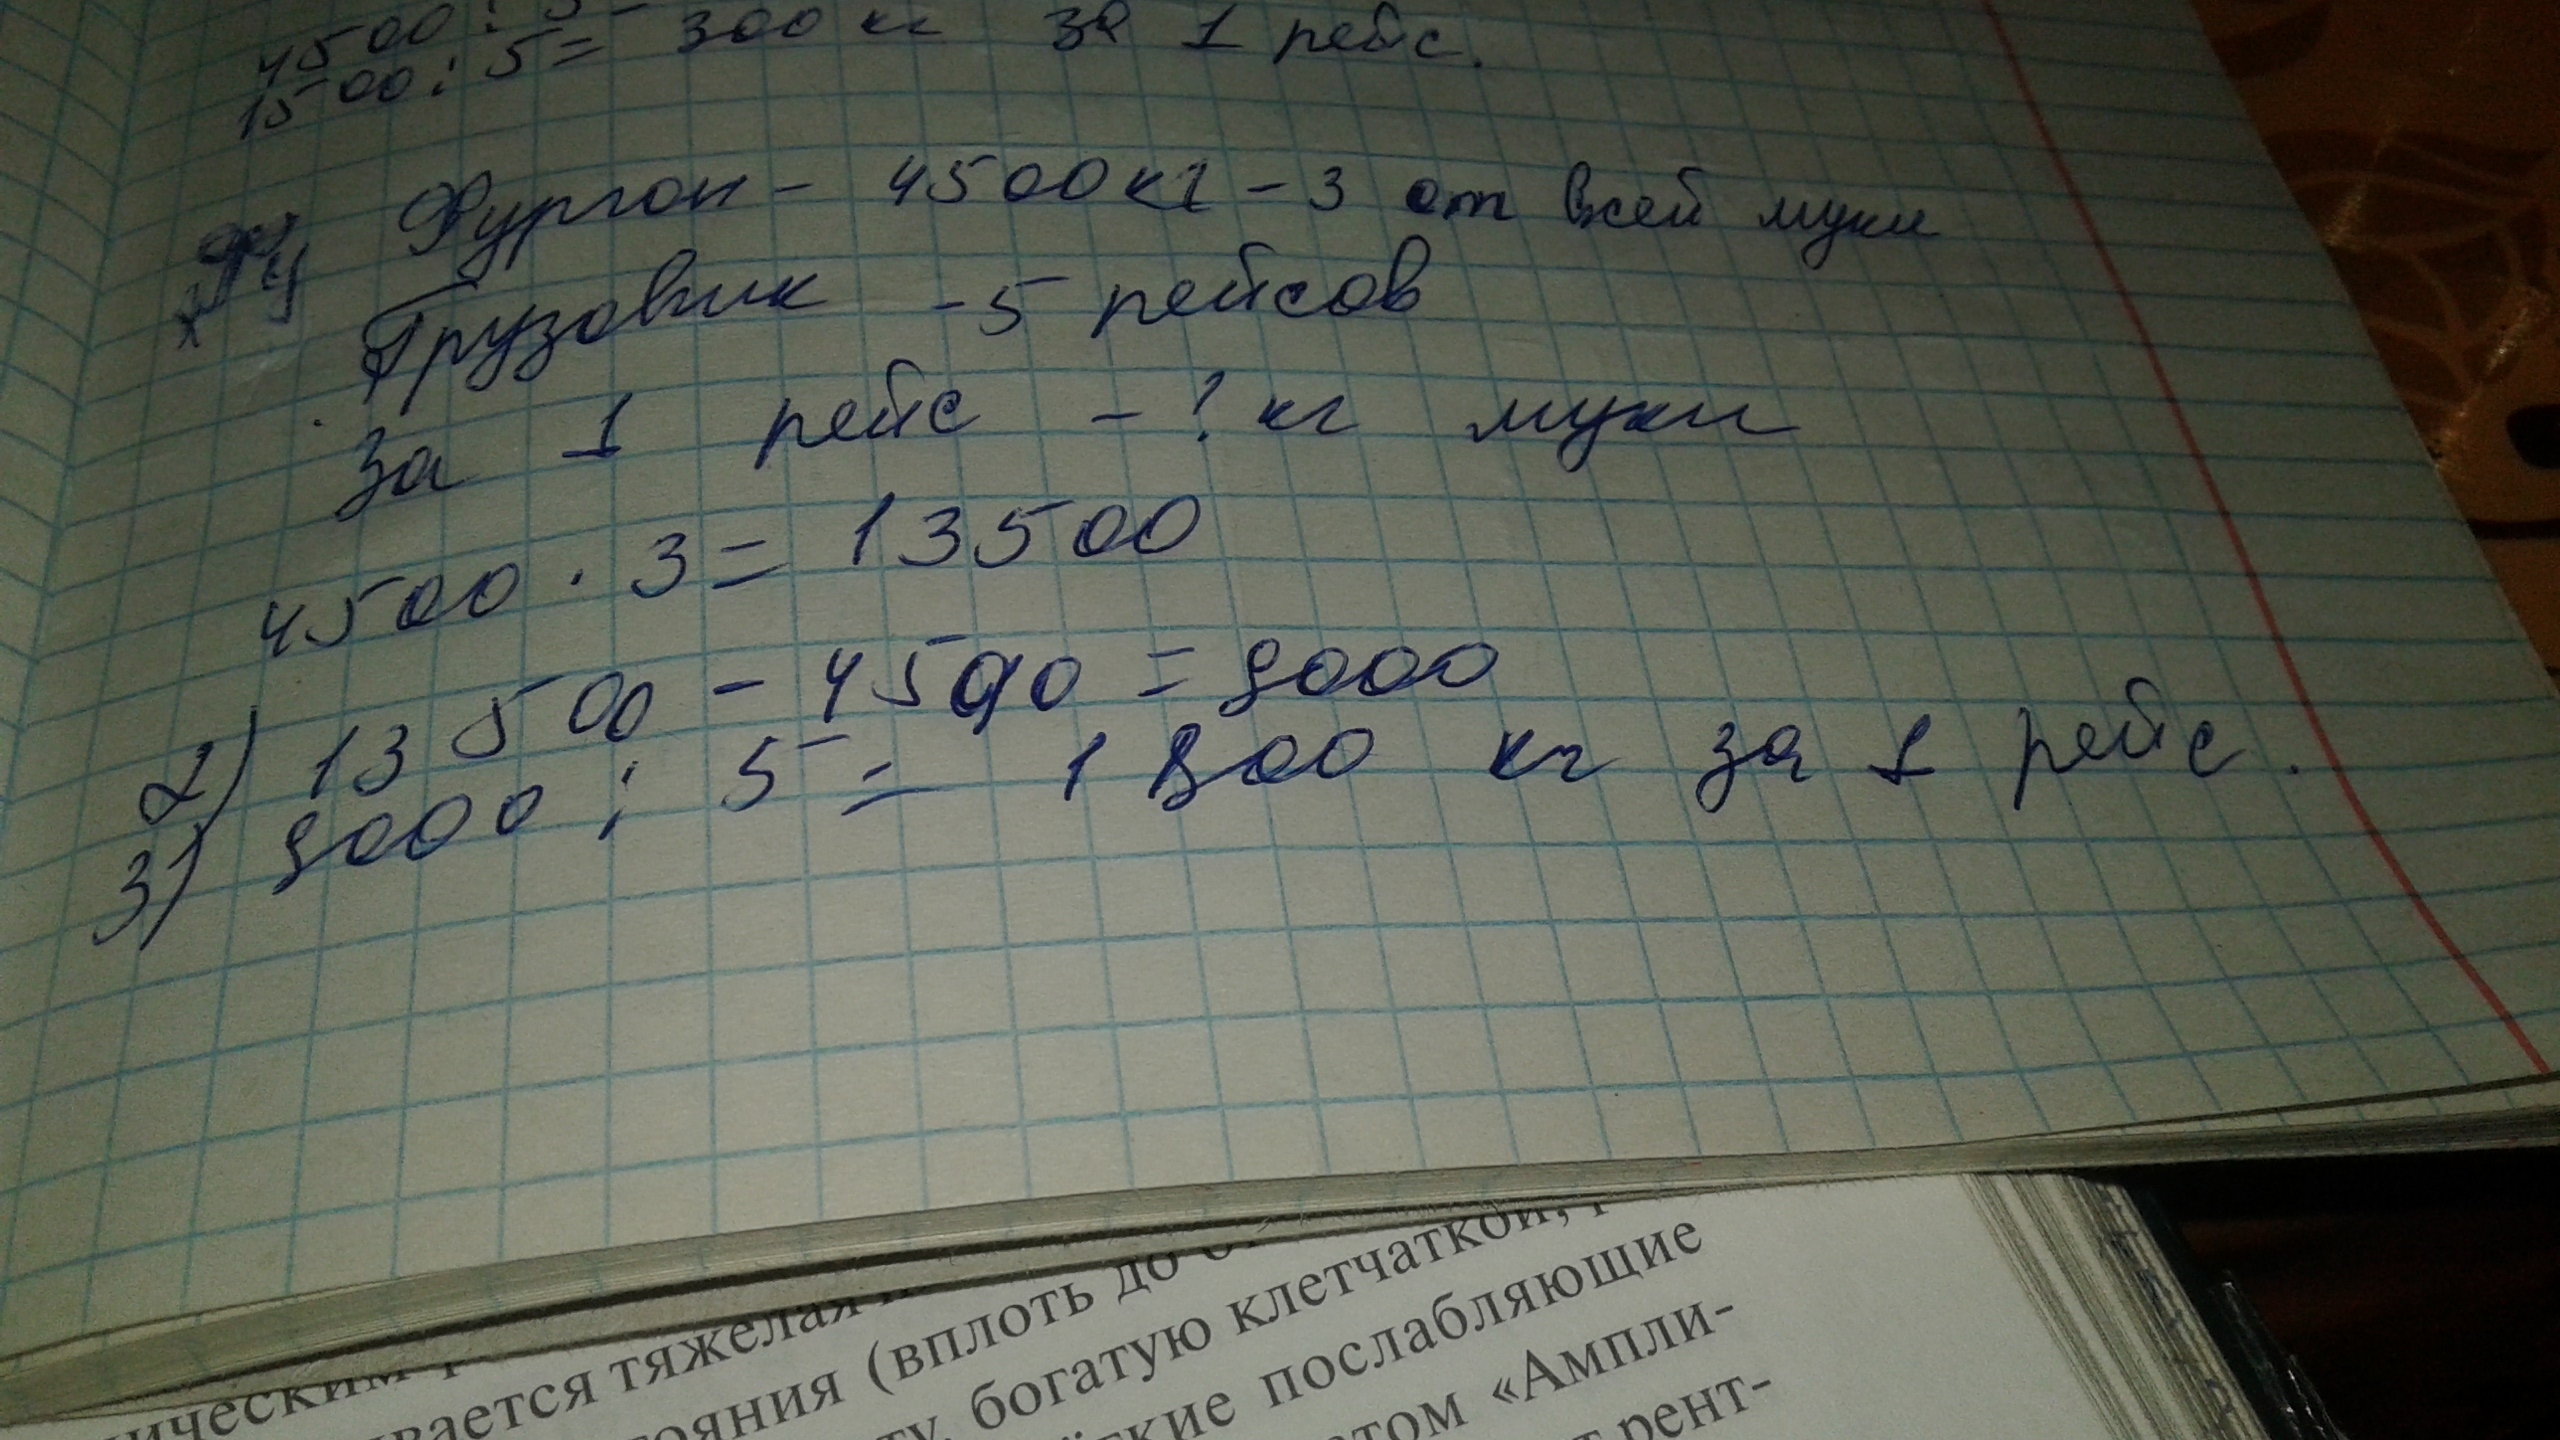 4500 : 3 =
1500 : 5 = 300 кг за 1 рейс.
Фургон - 4500 кг - 3 от всей муки
Грузовик - 5 рейсов
За 1 рейс - ? кг муки
4500 · 3 = 13500
2) 13500 - 4500 = 9000
3) 9000 : 5 = 1800 кг за 1 рейс.
ическим
вается тяжелая
ояния (вплоть до
ту, богатую клетчаткой,
гкие послабляющие
том «Ампли-
рент-